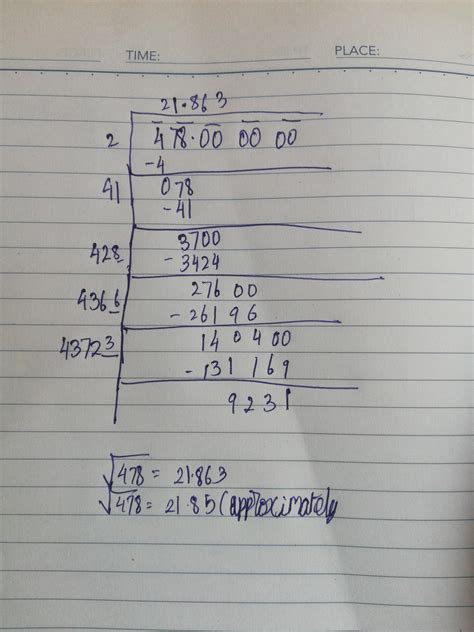 TIME:
PLACE:
21.863
2 478.00 00 00
-4
41 078
-41
428 3700
- 3424
4366 27600
- 26196
43723 140400
- 131169
9231
√478 = 21.863
√478 = 21.85 (approximately